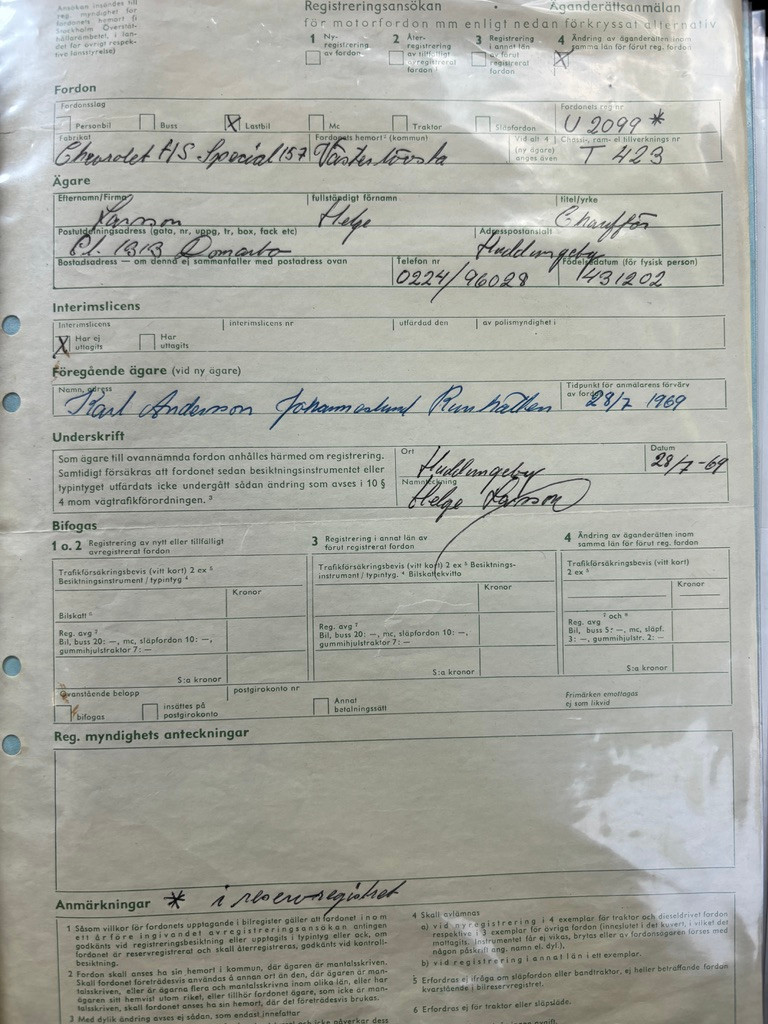 Ansökan insändes till
reg. myndighet för
fordonets hemort (i
Stockholm Överståt-
hållarämbetet, i lan-
det för övrigt respek-
tive länsstyrelse)
Registreringsansökan • Äganderättsanmälan
för motorfordon mm enligt nedan förkryssat alternativ
1 Ny-
registrering
av fordon
2 Åter-
registrering
av tillfälligt
avregistrerat
fordon
3 Registrering
i annat län
av förut
registrerat
fordon
4 Ändring av äganderätten inom
samma län för förut reg. fordon
X
Fordon
Fordonsslag
Personbil Buss X Lastbil Mc Traktor Släpfordon
Fordonets reg nr
U 2099 *
Fabrikat
Chevrolet H/S Special 157
Fordonets hemort ² (kommun)
Västerlövsta
Vid alt 4
(ny ägare)
anges även
Chassi-, ram- el tillverknings nr
T 423
Ägare
Efternamn/Firma
Larsson
fullständigt förnamn
Helge
titel/yrke
Chaufför
Postutdelningsadress (gata, nr, uppg, tr, box, fack etc)
Pl. 1313 Domarbo
Adresspostanstalt
Huddungeby
Bostadsadress — om denna ej sammanfaller med postadress ovan
Telefon nr
0224/96028
Födelsedatum (för fysisk person)
431202
Interimslicens
Interimslicens
X Har ej
uttagits
Har
uttagits
interimslicens nr
utfärdad den
av polismyndighet i
Föregående ägare (vid ny ägare)
Namn, adress
Karl Andersson Johanneslund Runhällen
Tidpunkt för anmälarens förvärv
av fordon
28/7 1969
Underskrift
Som ägare till ovannämnda fordon anhålles härmed om registrering.
Samtidigt försäkras att fordonet sedan besiktningsinstrumentet eller
typintyget utfärdats icke undergått sådan ändring som avses i 10 §
4 mom vägtrafikförordningen. ³
Ort
Huddungeby
Datum
28/7-69
Namnteckning
Helge Larsson
Bifogas
1 o. 2 Registrering av nytt eller tillfälligt
avregistrerat fordon
3 Registrering i annat län av
förut registrerat fordon
4 Ändring av äganderätten inom
samma län för förut reg. fordon
Trafikförsäkringsbevis (vitt kort) 2 ex ⁵
Besiktningsinstrument / typintyg ⁴
Kronor
Bilskatt ⁶
Reg. avg ⁷
Bil, buss 20: —, mc, släpfordon 10: —,
gummihjulstraktor 7: —
S:a kronor
Trafikförsäkringsbevis (vitt kort) 2 ex ⁵ Besiktnings-
instrument / typintyg. ⁴ Bilskattekvitto
Kronor
Reg. avg ⁷
Bil, buss 20: —, mc, släpfordon 10: —,
gummihjulstraktor 7: —
S:a kronor
Trafikförsäkringsbevis (vitt kort)
2 ex ⁵
Kronor
Reg. avg ⁷ och ⁸
Bil, buss 5: —, mc, släpf.
3: —, gummihjulstr. 2: —
S:a kronor
Ovanstående belopp
bifogas
insättes på
postgirokonto
postgirokonto nr
Annat
betalningssätt
Frimärken emottagas
ej som likvid
Reg. myndighets anteckningar
Anmärkningar * i reservregistret
1 Såsom villkor för fordonets upptagande i bilregister gäller att fordonet inom
ett år före ingivandet av registreringsansökan antingen
godkänts vid registreringsbesiktning eller upptagits i typintyg eller ock, om
fordonet är reservregistrerat och skall återregistreras, godkänts vid kontroll-
besiktning.
2 Fordon skall anses ha sin hemort i kommun, där ägaren är mantalsskriven.
Skall fordonet företrädesvis användas å annan ort än den, där ägaren är man-
talsskriven, eller är ägarna flera och mantalsskrivna inom olika län, eller har
ägaren sitt hemvist utom riket, eller tillhör fordonet ägare, som icke är man-
talsskriven, skall fordonet anses ha sin hemort, där det företrädesvis brukas.
3 Med dylik ändring avses ej sådan, som endast innefattar
4 Skall avlämnas
a) vid nyregistrering i 4 exemplar för traktor och dieseldrivet fordon
respektive i 3 exemplar för övriga fordon (inneslutet i det kuvert, i vilket det
mottagits. Instrumentet får ej vikas, brytas eller av fordonsägaren förses med
någon påskrift ang. namn el. dyl.).
b) vid registrering i annat län i ett exemplar.
5 Erfordras ej ifråga om släpfordon eller bandtraktor, ej heller beträffande fordon
kvarstående i bilreservregistret.
6 Erfordras ej för traktor eller släpsläde.